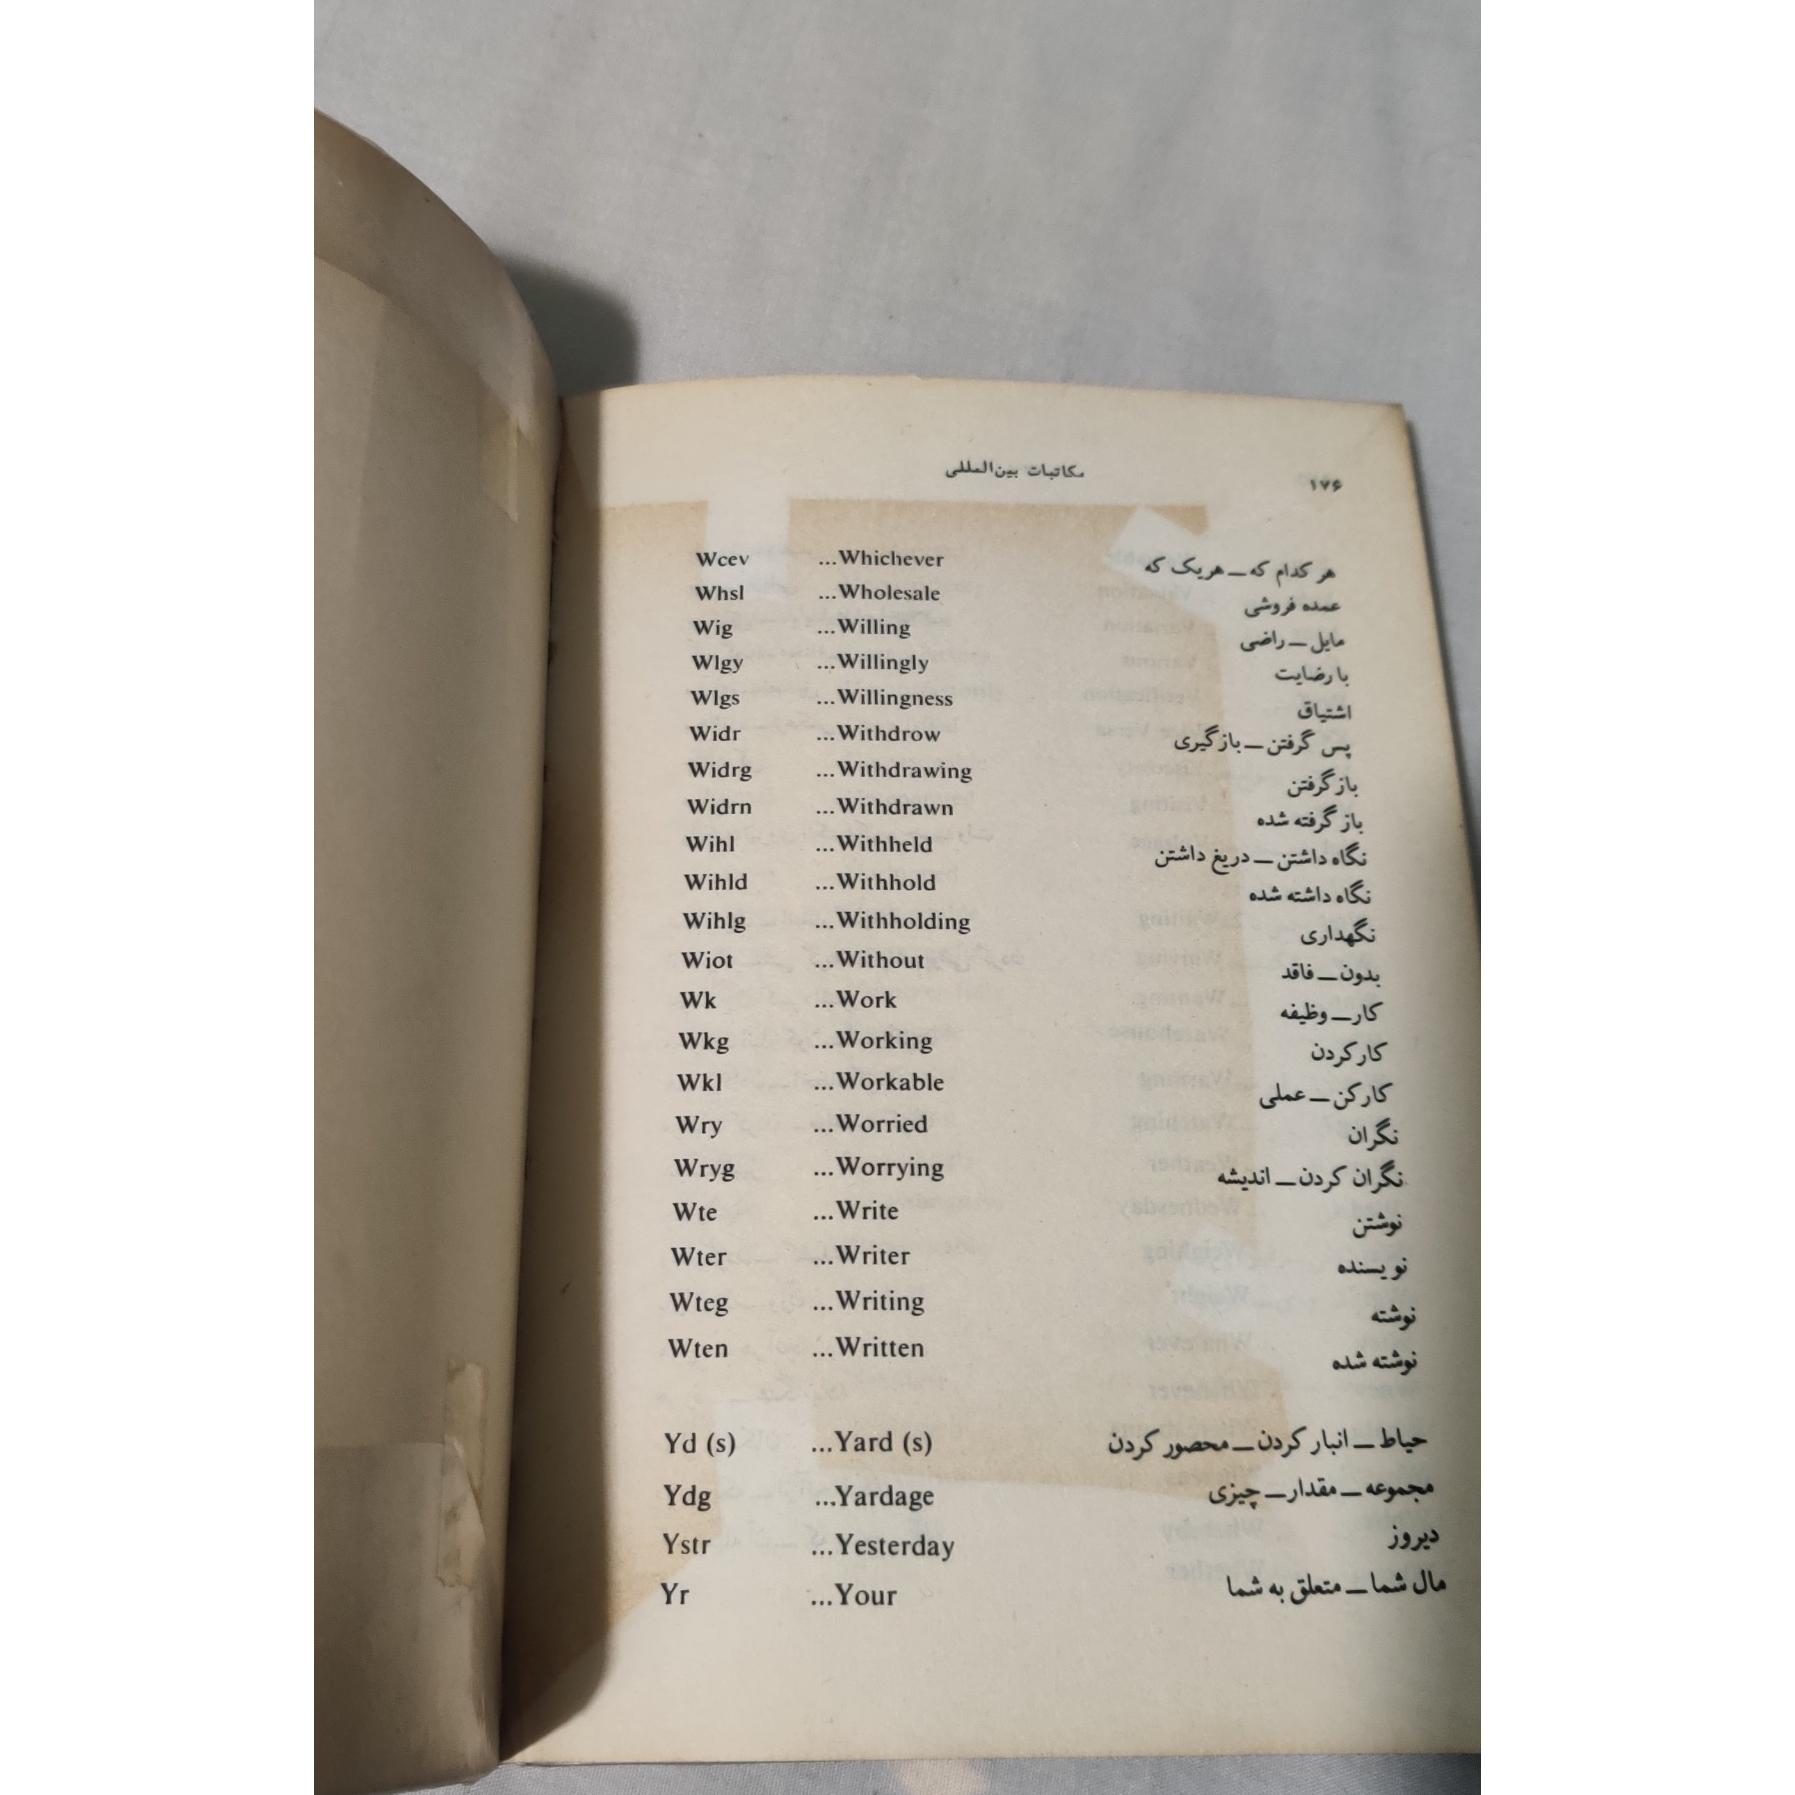 ۱۷۶ مکاتبات بین‌المللی
Wcev ...Whichever هر کدام که ــ هریک که
Whsl ...Wholesale عمده فروشی
Wig ...Willing مایل ــ راضی
Wlgy ...Willingly با رضایت
Wlgs ...Willingness اشتیاق
Widr ...Withdrow پس گرفتن ــ بازگیری
Widrg ...Withdrawing باز گرفتن
Widrn ...Withdrawn باز گرفته شده
Wihl ...Withheld نگاه داشتن ــ دریغ داشتن
Wihld ...Withhold نگاه داشته شده
Wihlg ...Withholding نگهداری
Wiot ...Without بدون ــ فاقد
Wk ...Work کار ــ وظیفه
Wkg ...Working کار کردن
Wkl ...Workable کارکن ــ عملی
Wry ...Worried نگران
Wryg ...Worrying نگران کردن ــ اندیشه
Wte ...Write نوشتن
Wter ...Writer نویسنده
Wteg ...Writing نوشته
Wten ...Written نوشته شده
Yd (s) ...Yard (s) حیاط ــ انبار کردن ــ محصور کردن
Ydg ...Yardage مجموعه ــ مقدار ــ چیزی
Ystr ...Yesterday دیروز
Yr ...Your مال شما ــ متعلق به شما